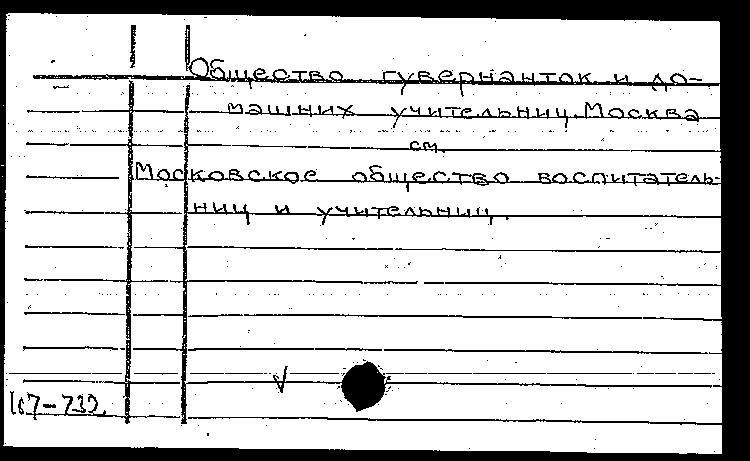 Общество гувернанток и до-
машних учительниц. Москва
см.
Московское общество воспитатель-
ниц и учительниц.
√